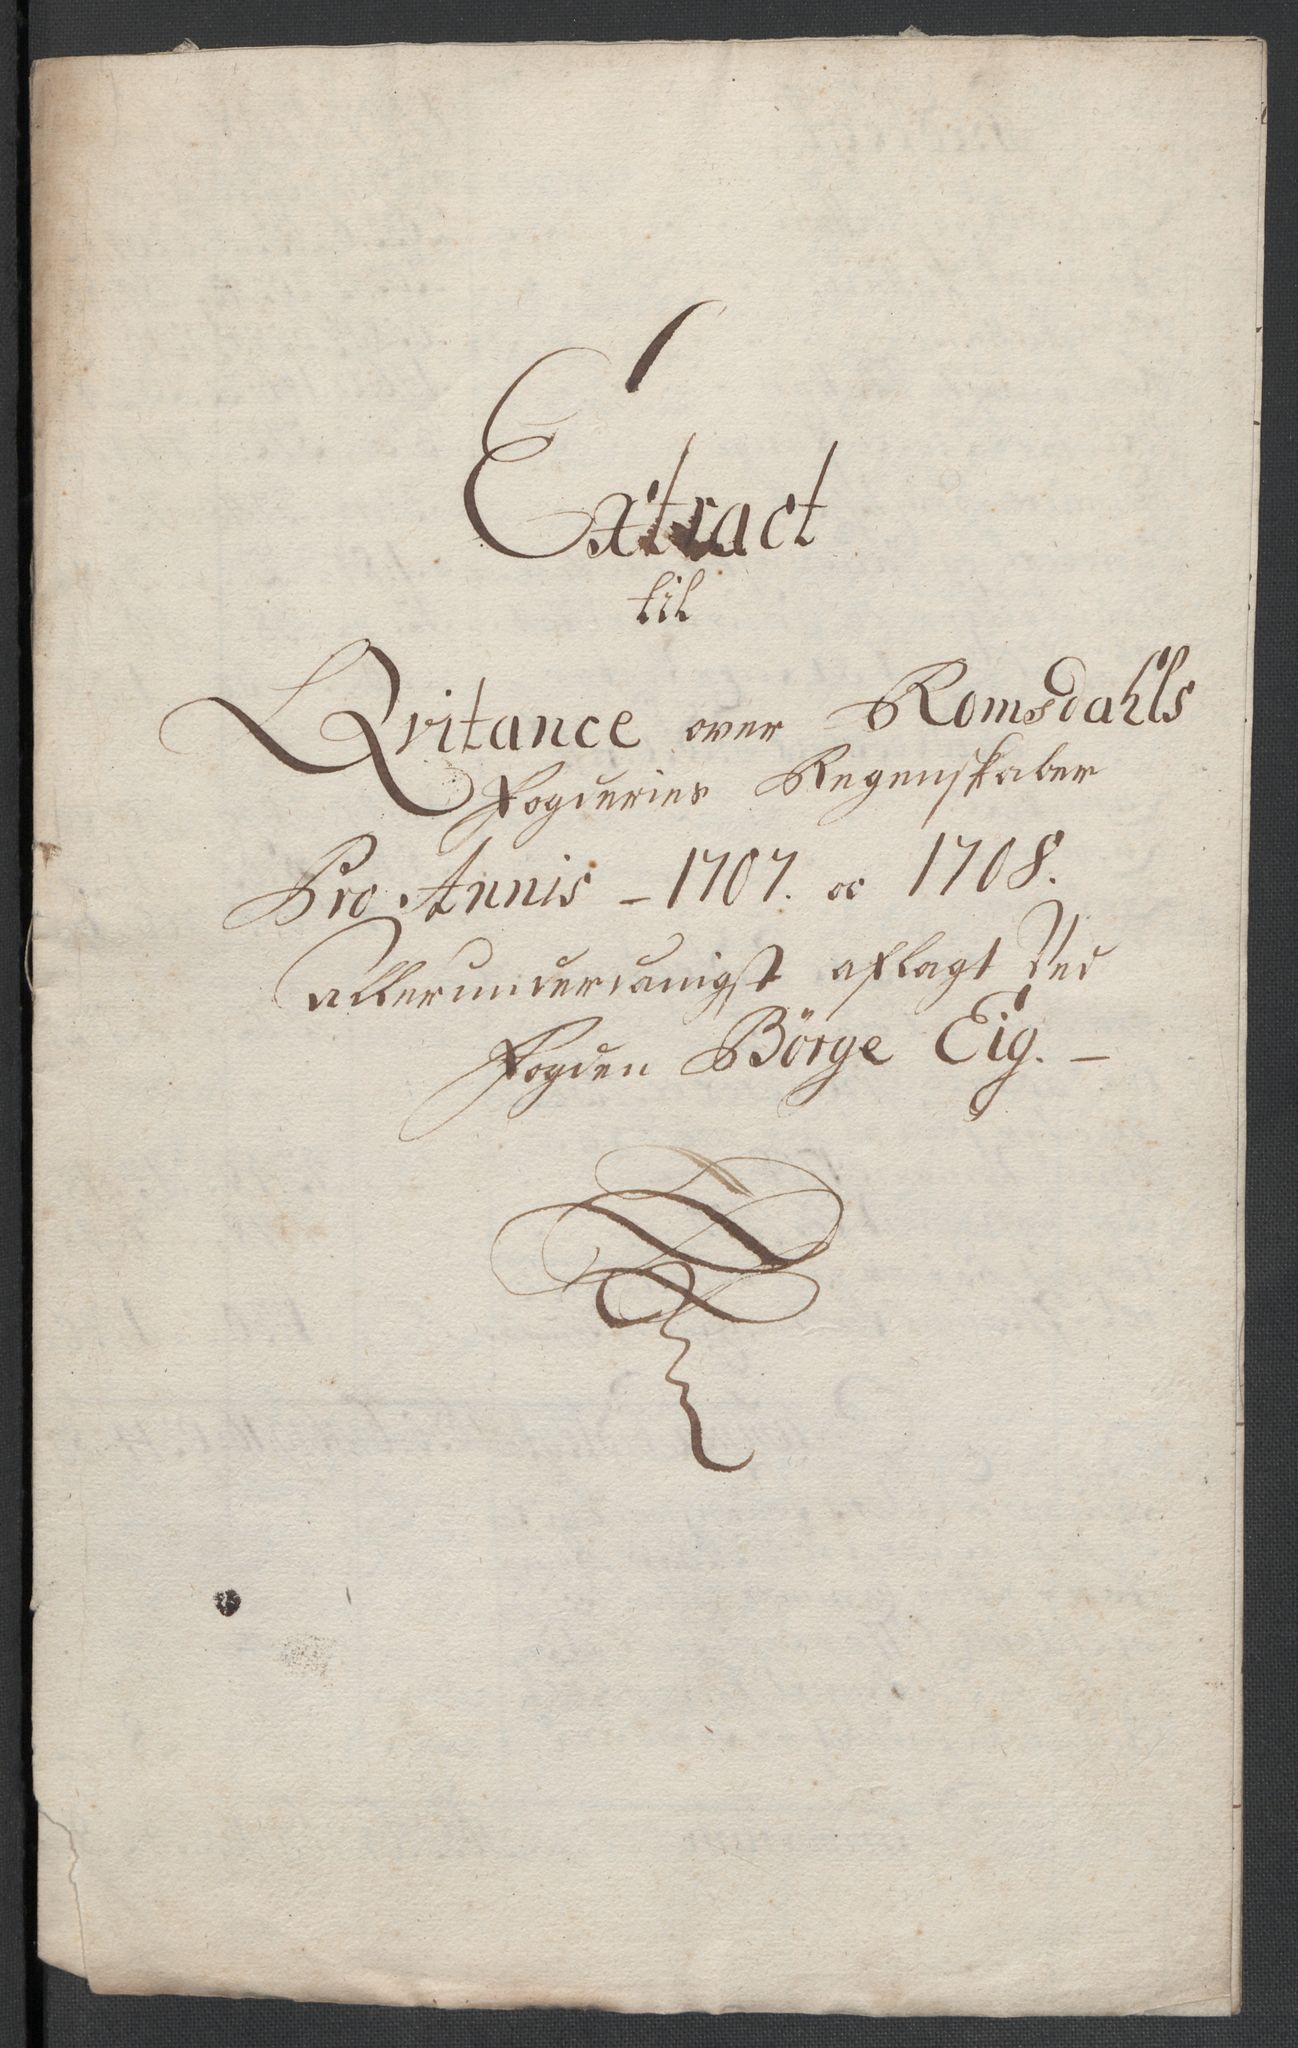 Extract
til
Qvitance over Romsdahls
Fogderies Regenskaber
Pro Annis - 1707. oc 1708.
allerunderdanigst aflagt Ved
Fogden Börge Eig. -